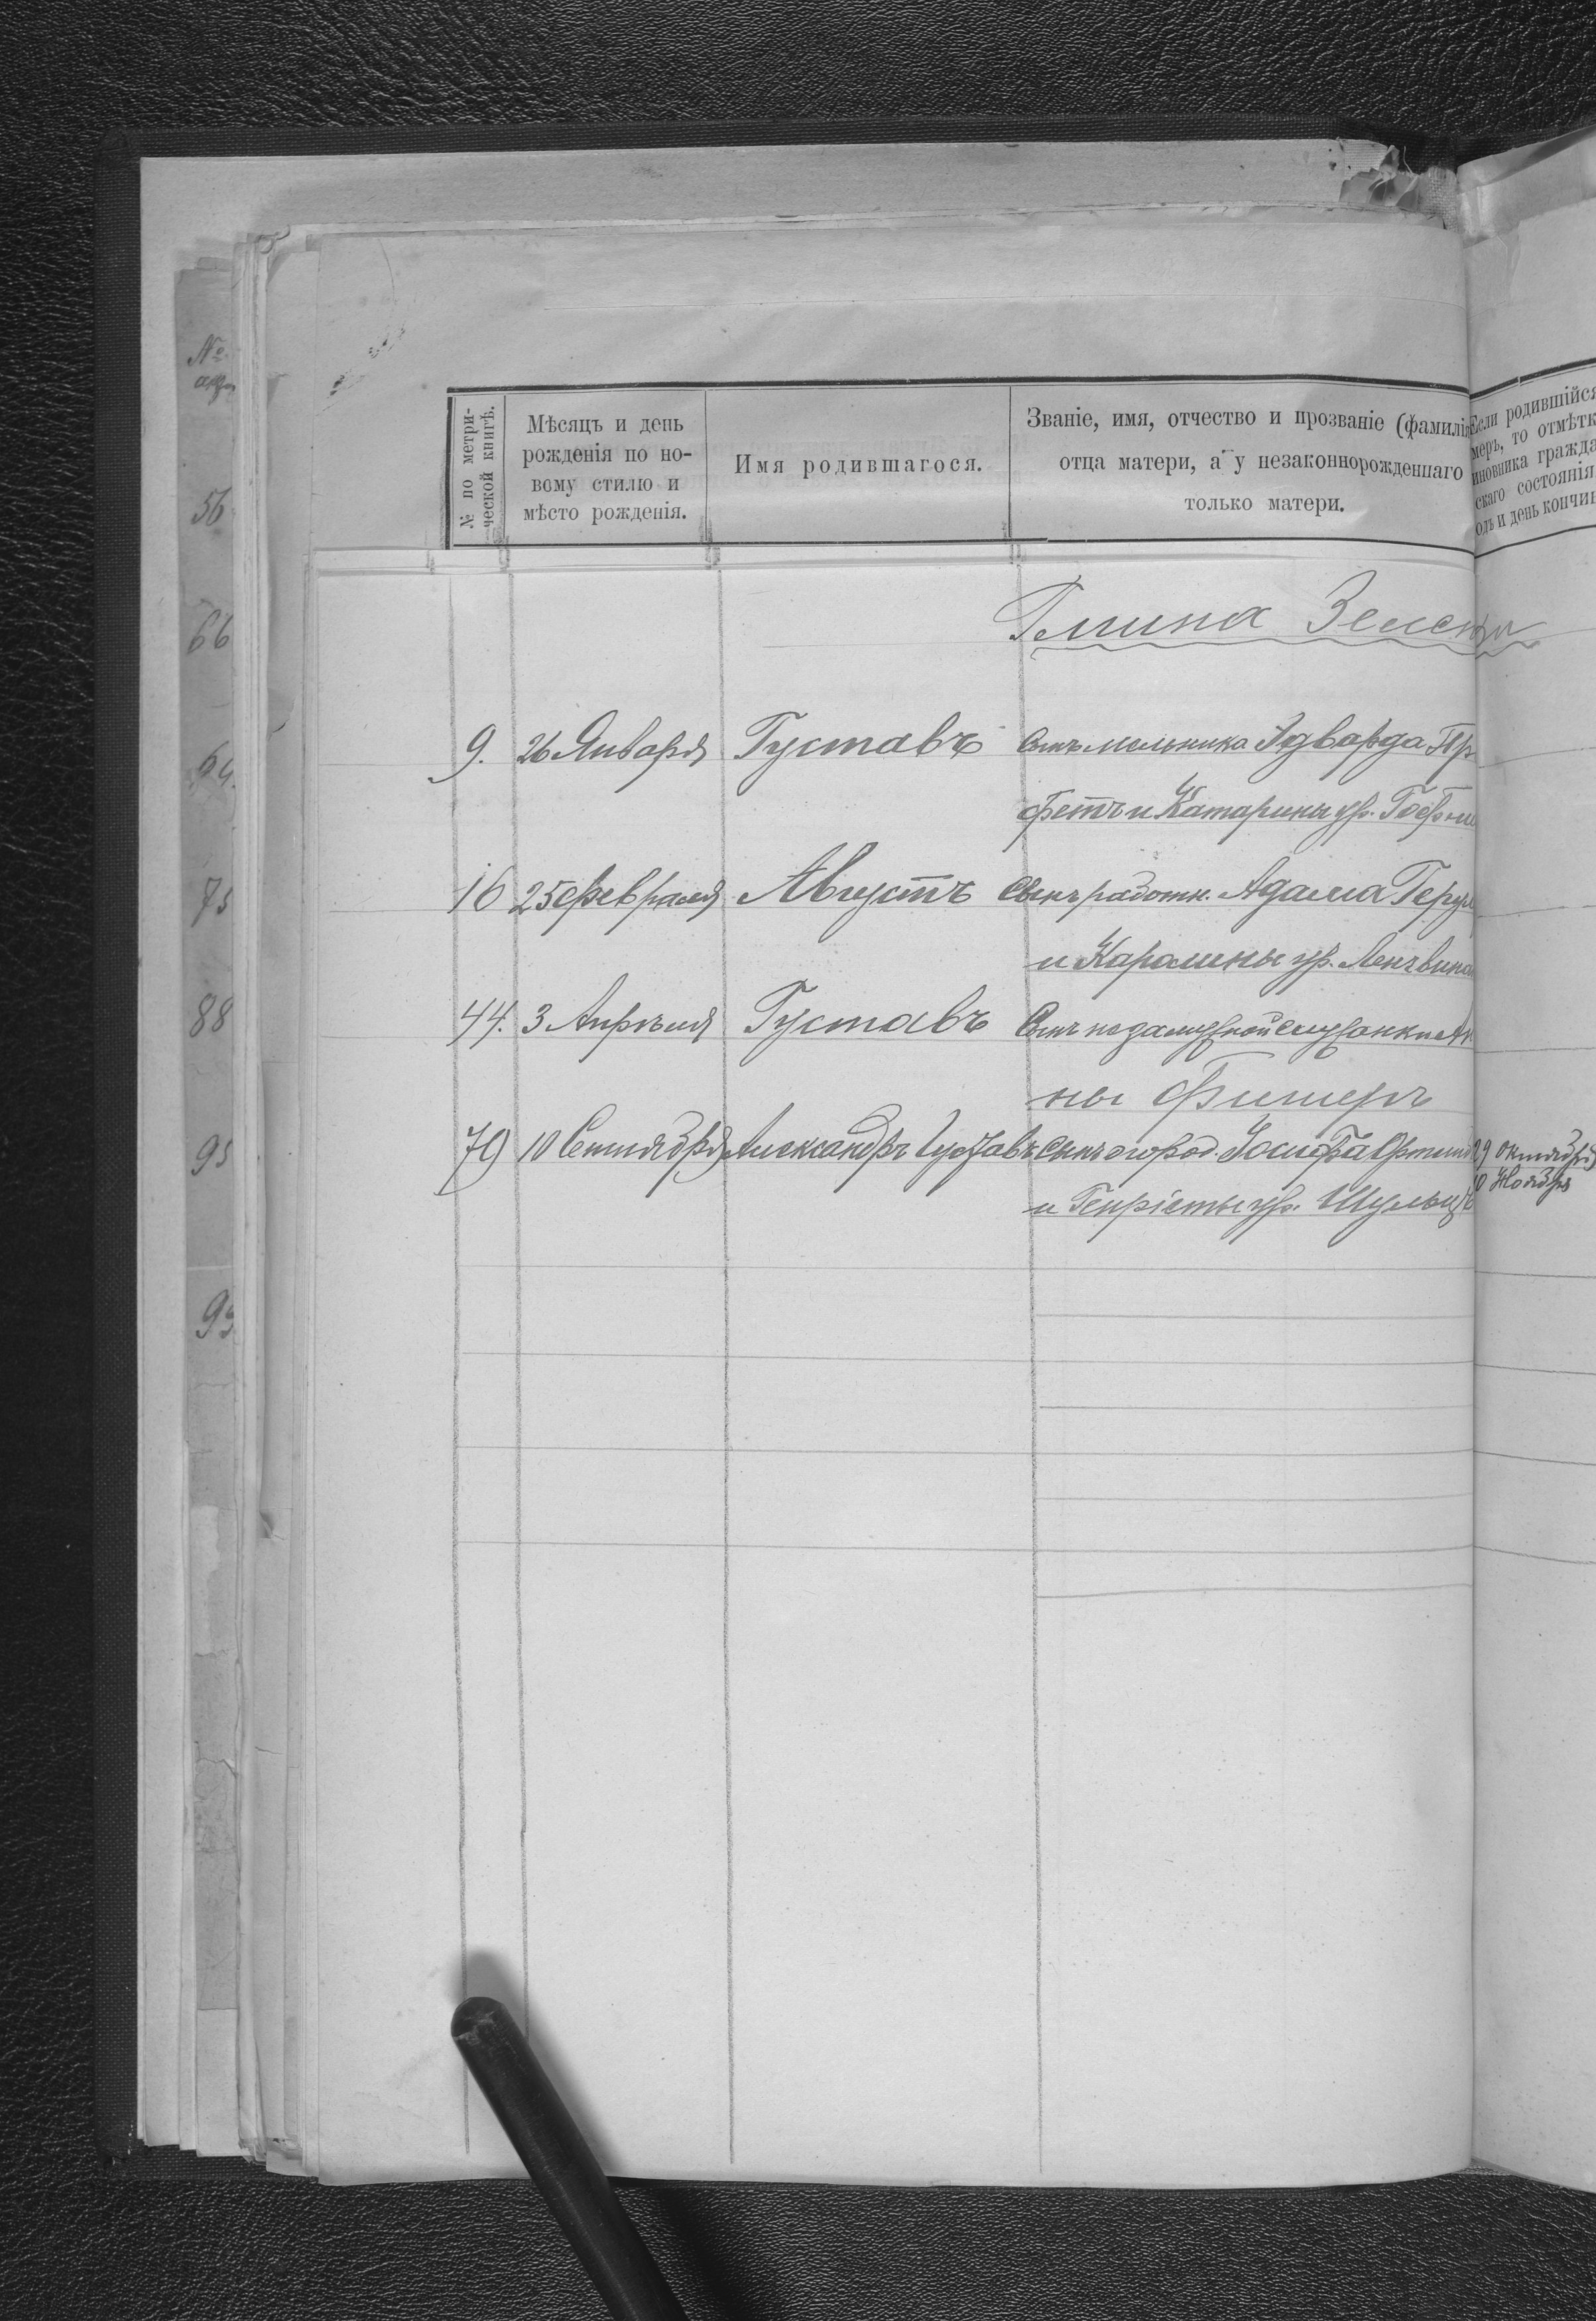 №
56
66
64.
75
88
95
93
№ по метри-
ческой книгѣ.
Мѣсяцъ и день
рожденія по но-
вому стилю и
мѣсто рожденія.
Имя родившагося.
Званіе, имя, отчество и прозваніе (фамилія
отца матери, а у незаконнорожденнаго
только матери.
Если родившійся
меръ, то отмѣтк
иновника гражда
скаго состоянія
одъ и день кончин
Гмина
9. 26 Января Густавъ Сынъ мельника Эдварда Пр
фетъ и Катарины ур. Гофм
16 25 февраля Августъ Сынъ работн. Адама Герул
и Каролины ур.
44. 3 Апрѣля Густавъ Сынъ незамужной служанки Ан
ны Фишеръ
79 10 Сентября Александръ Густавъ Сынъ огород. Іосифа
и Генріеты ур. Шульцъ
29 Октября
10 Ноября